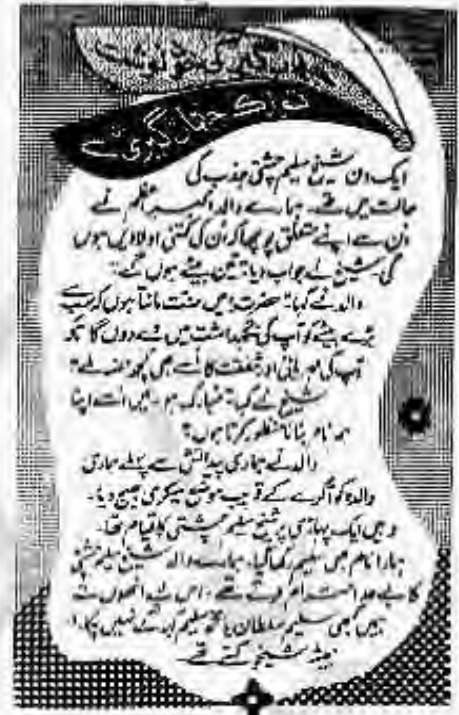 جہانگیر کی
تزک جہانگیری سے
ایک دن شیخ سلیم چشتی جذب کی
حالت میں تھے۔ ہمارے والد اکبر اعظم نے
اُن سے اپنے متعلق پوچھا کہ اُن کی کتنی اولادیں ہوں
گی۔ شیخ نے جواب دیا: تین بیٹے ہوں گے۔
والد نے کہا: حضرت! میں منت مانتا ہوں کہ سب سے
بڑے بیٹے کو آپ کی نگہداشت میں دے دوں گا تاکہ
آپ کی مہربانی اور شفقت کا اُسے بھی کچھ حصہ ملے؟
شیخ نے کہا: مبارک ہو۔ میں اُسے اپنا
ہم نام بنانا منظور کرتا ہوں؟
والد نے ہماری پیدائش سے پہلے ہماری
والدہ کو آگرے کے قریب موضع سیکری بھیج دیا۔
وہیں ایک پہاڑی پر شیخ سلیم چشتی کا قیام تھا۔
ہمارا نام بھی سلیم رکھا گیا۔ ہمارے والد شیخ سلیم چشتی
کا بے حد احترام کرتے تھے۔ اس لئے انھوں نے
ہمیں کبھی سلیم سلطان یا محمد سلیم کہہ کے نہیں پکارا۔
ہمیشہ شیخو کہتے تھے۔